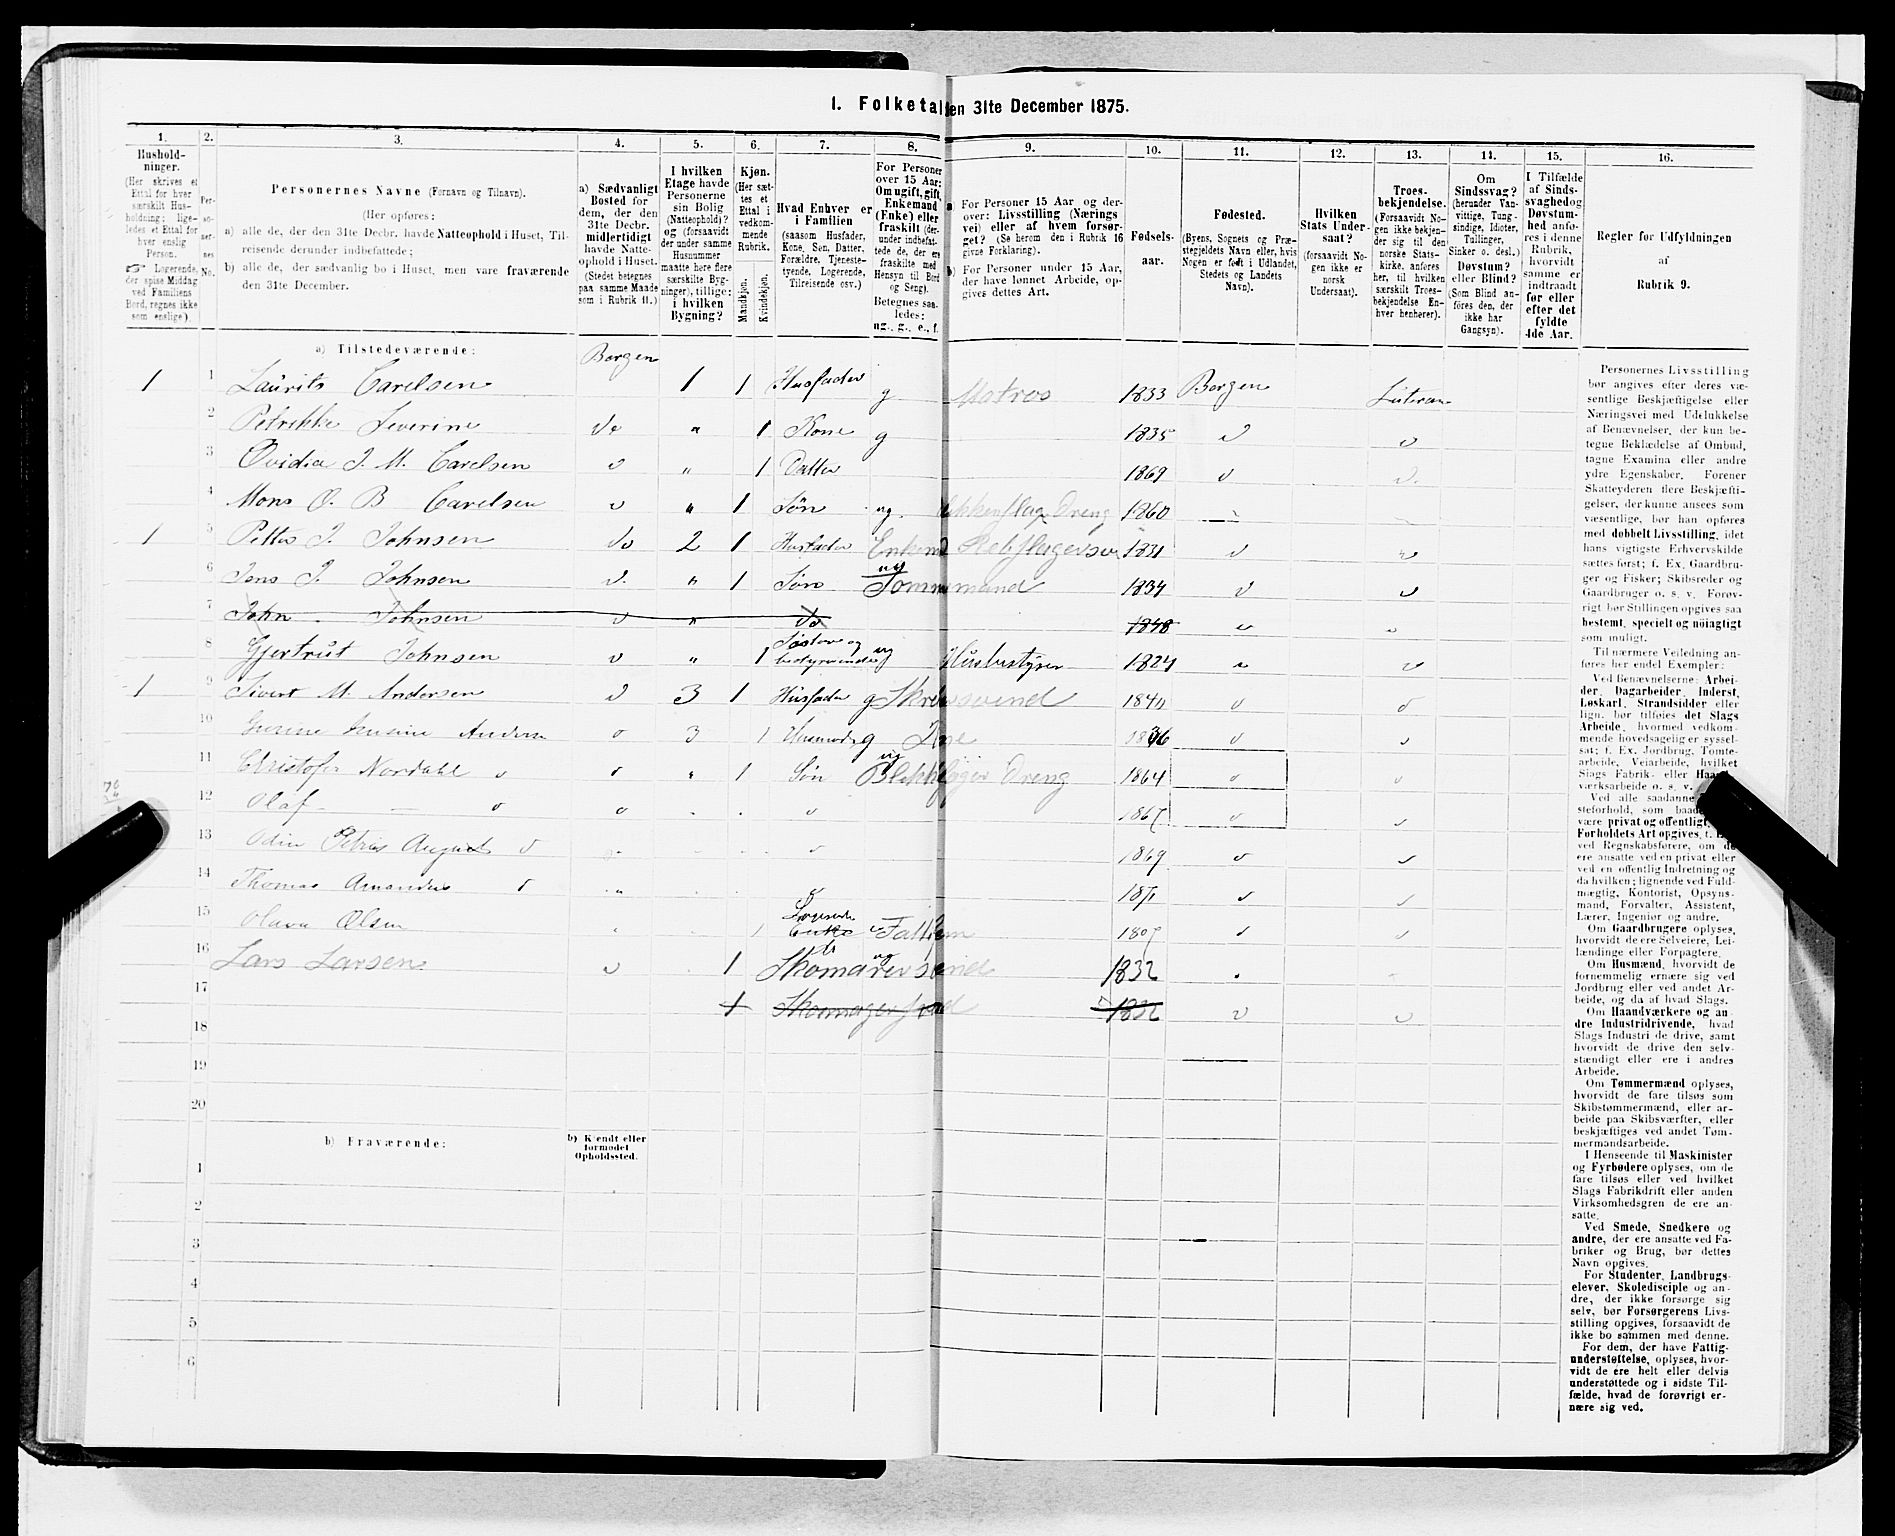 1. Folketal den 31te December 1875.
1. 2. 3. 4. 5. 6. 7. 8. 9. 10. 11. 12. 13. 14. 15. 16.
Hushold-
ninger.
(Her skrives et
Ettal for hver
særskilt Hus-
holdning; lige-
ledes et Ettal for
hver enslig
Person.
☞ Logerende,
der spise Middag
ved Familiens
Bord, regnes ikke
som enslige).
Per-
so-
ner-
nes
No.
Personernes Navne (Fornavn og Tilnavn).
(Her opføres:
a) alle de, der den 31te Decbr. havde Natteophold i Huset, Til-
reisende derunder indbefattede;
b) alle de, der sædvanlig bo i Huset, men vare fraværende
den 31te December.
a) Sædvanligt
Bosted for
dem, der den
31te Decbr.
midlertidigt
havde Natte-
ophold i Huset.
(Stedet betegnes
paa samme Maade
som i Rubrik 11.)
I hvilken
Etage havde
Personerne
sin Bolig
(Natteophold)?
og (forsaavidt
der under samme
Husnummer
maatte høre flere
særskilte Byg-
ninger), tillige:
i hvilken
Bygning?
Kjøn.
(Her sæt-
tes et
Ettal i
vedkom-
mende
Rubrik.
Mandkjøn.
Kvindekjøn.
Hvad Enhver er
i Familien
(saasom Husfader,
Kone, Søn, Datter,
Forældre, Tjeneste-
tyende, Logerende,
Tilreisende osv.)
For Personer
over 15 Aar:
Om ugift, gift,
Enkemand
(Enke) eller
fraskilt (der-
under indbefat-
tede de, der ere
fraskilte med
Hensyn til Bord
og Seng).
Betegnes saa-
ledes:
ug., g., e., f.
a For Personer 15 Aar og der-
over: Livsstilling (Nærings
vei) eller af hvem forsør-
get? (Se herom den i Rubrik 16
givne Forklaring).
b For Personer under 15 Aar,
der have lønnet Arbeide, op-
gives dettes Art.
Fødsels-
aar.
Fødested.
(Byens, Sognets og Præ-
stegjeldets Navn eller, hvis
Nogen er født i Udlandet,
Stedets og Landets
Navn).
Hvilken
Stats Under-
saat?
(forsaavidt No-
gen ikke er
norsk
Undersaat).
Troes-
bekjendelse.
(Forsaavidt No-
gen ikke bekjen-
der sig til den
norske Stats-
kirke, anføres
her, til hvilken
særskilt Troes-
bekjendelse En-
hver henhører).
Om
Sindssvag?
(herunder Van-
vittige, Tung-
sindige, Idioter,
Tullinger,
Sinker o. desl.)
Døvstum?
eller Blind?
(Som Blind an-
føres den, der
ikke har
Gangsyn).
I Tilfælde
af Sinds-
svaghed og
Døvstum-
hed anfø-
res i denne
Rubrik,
hvorvidt
samme er
indtraadt
før eller
efter det
fyldte
4de Aar.
Regler for Udfyldningen
af
Rubrik 9.
a) Tilstedeværende:
Bergen
1 1 Laurits Carelsen 1 1 Husfader g Matros 1833 Bergen Luteran
2 Petrikke Severine do „ 1 Kone g 1835
3 Ovidia J. M. Carelsen „ 1 Datter 1869
4 Mons O. B Carelsen „ 1 Søn ug. Dreng 1860
1 5 Petter J. Johnsen do 2 1 Husfader Enkemd Rebslagersv 1831
6 Jens J. Johnsen „ 1 Søn ug Tømmermand 1834
7 John Johnsen „ do 1848
8 Gjertrut Johnsen „ 1 Søster og
bestyrerinde ug Husbestyrer 1824
1 9 Sivert M. Andersen 3 1 Husfader g Skrædsvend 1840
10 Andersen 3 1 Husmoder g
11 Christofer Nordahl „ 1 Søn ug Blikslager Dreng 1864
12 Olaf — 1867
13 Odin Petrus August 1869
14 Thomas 1871
15 Olava Olsen 1 Logerende
Enke Fattigm
16 Lars Larsen 1 do ug
Skomagersvend 1832
17 1 Skomagersvend 1832
18
19
20
b) Fraværende:
b) Kjendt eller
formodet
Opholdssted.
1
2
3
4
5
6
Personernes Livsstilling
bør angives efter deres væ-
sentlige Beskjæftigelse eller
Næringsvei med Udelukkelse
af Benævnelser, der kun be-
tegne Beklædelse af Ombud,
tagne Examina eller andre
ydre Egenskaber. Forener
Skatteyderen flere Beskjæfti-
gelser, der kunne ansees som
væsentlige, bør han opføres
med dobbelt Livsstilling, idet
hans vigtigste Erhvervskilde
sættes først; f. Ex. Gaardbru-
ger og Fisker; Skibsreder og
Gaardbruger o. s. v. Forøv-
rigt bør Stillingen opgives saa
bestemt, specielt og nøiagtigt
som muligt.
Til nærmere Veiledning an-
føres her endel Exempler:
Ved Benævnelserne: Arbei-
der, Dagarbeider, Inderst,
Løskarl, Strandsidder eller
lign. bør tilføies det Slags
Arbeide, hvormed vedkom-
mende hovedsagelig er syssel-
sat; f. Ex. Jordbrug, Tomte-
arbeide, Veiarbeide, hvilket
Slags Fabrik- eller Haand-
værksarbeide o. s. v.
Ved alle saadanne
steforhold, som baade
være privat og offentligt,
Forholdets Art opgives, t. Ex.
ved Regnskabsførere, om de
ere ansatte ved en privat eller
ved en offentlig Indretning og
da hvilken; lignende ved Fuld-
mægtig, Kontorist, Opsyns-
mand, Forvalter, Assistent,
Lærer, Ingeniør og andre.
Om Gaardbrugere oplyses,
hvorvidt de ere Selveiere, Lei-
lændinge eller Forpagtere.
Om Husmænd, hvorvidt de
fornemmelig ernære sig ved
Jordbrug eller ved andet Ar-
beide, og da af hvad Slags.
Om Haandværkere og an-
dre Industridrivende, hvad
Slags Industri de drive, samt
hvorvidt de drive den selv-
stændigt eller ere i andres
Arbeide.
Om Tømmermænd oplyses,
hvorvidt de fare tilsøs som
Skibstømmermænd, eller ar-
beide paa Skibsværfter, eller
beskjæftiges ved andet Tøm-
mermandsarbeide.
I Henseende til Maskinister
og Fyrbødere oplyses, om de
fare tilsøs eller ved hvilket
Slags Fabrikdrift eller anden
Virksomhedsgren de ere an-
satte.
Ved Smede, Snedkere og
andre, der ere ansatte ved Fa-
briker og Brug, bør dettes
Navn opgives.
For Studenter, Landbrugs-
elever, Skoledisciple og an-
dre, der ikke forsørge sig
selv, bør Forsørgerens Livs-
stilling opgives, forsaavidt de
ikke bo sammen med denne.
For dem, der have Fattig-
understøttelse, oplyses, hvor-
vidt de ere helt eller delvis
understøttede og i sidste Til-
fælde, hvad de forøvrigt er-
nære sig ved.